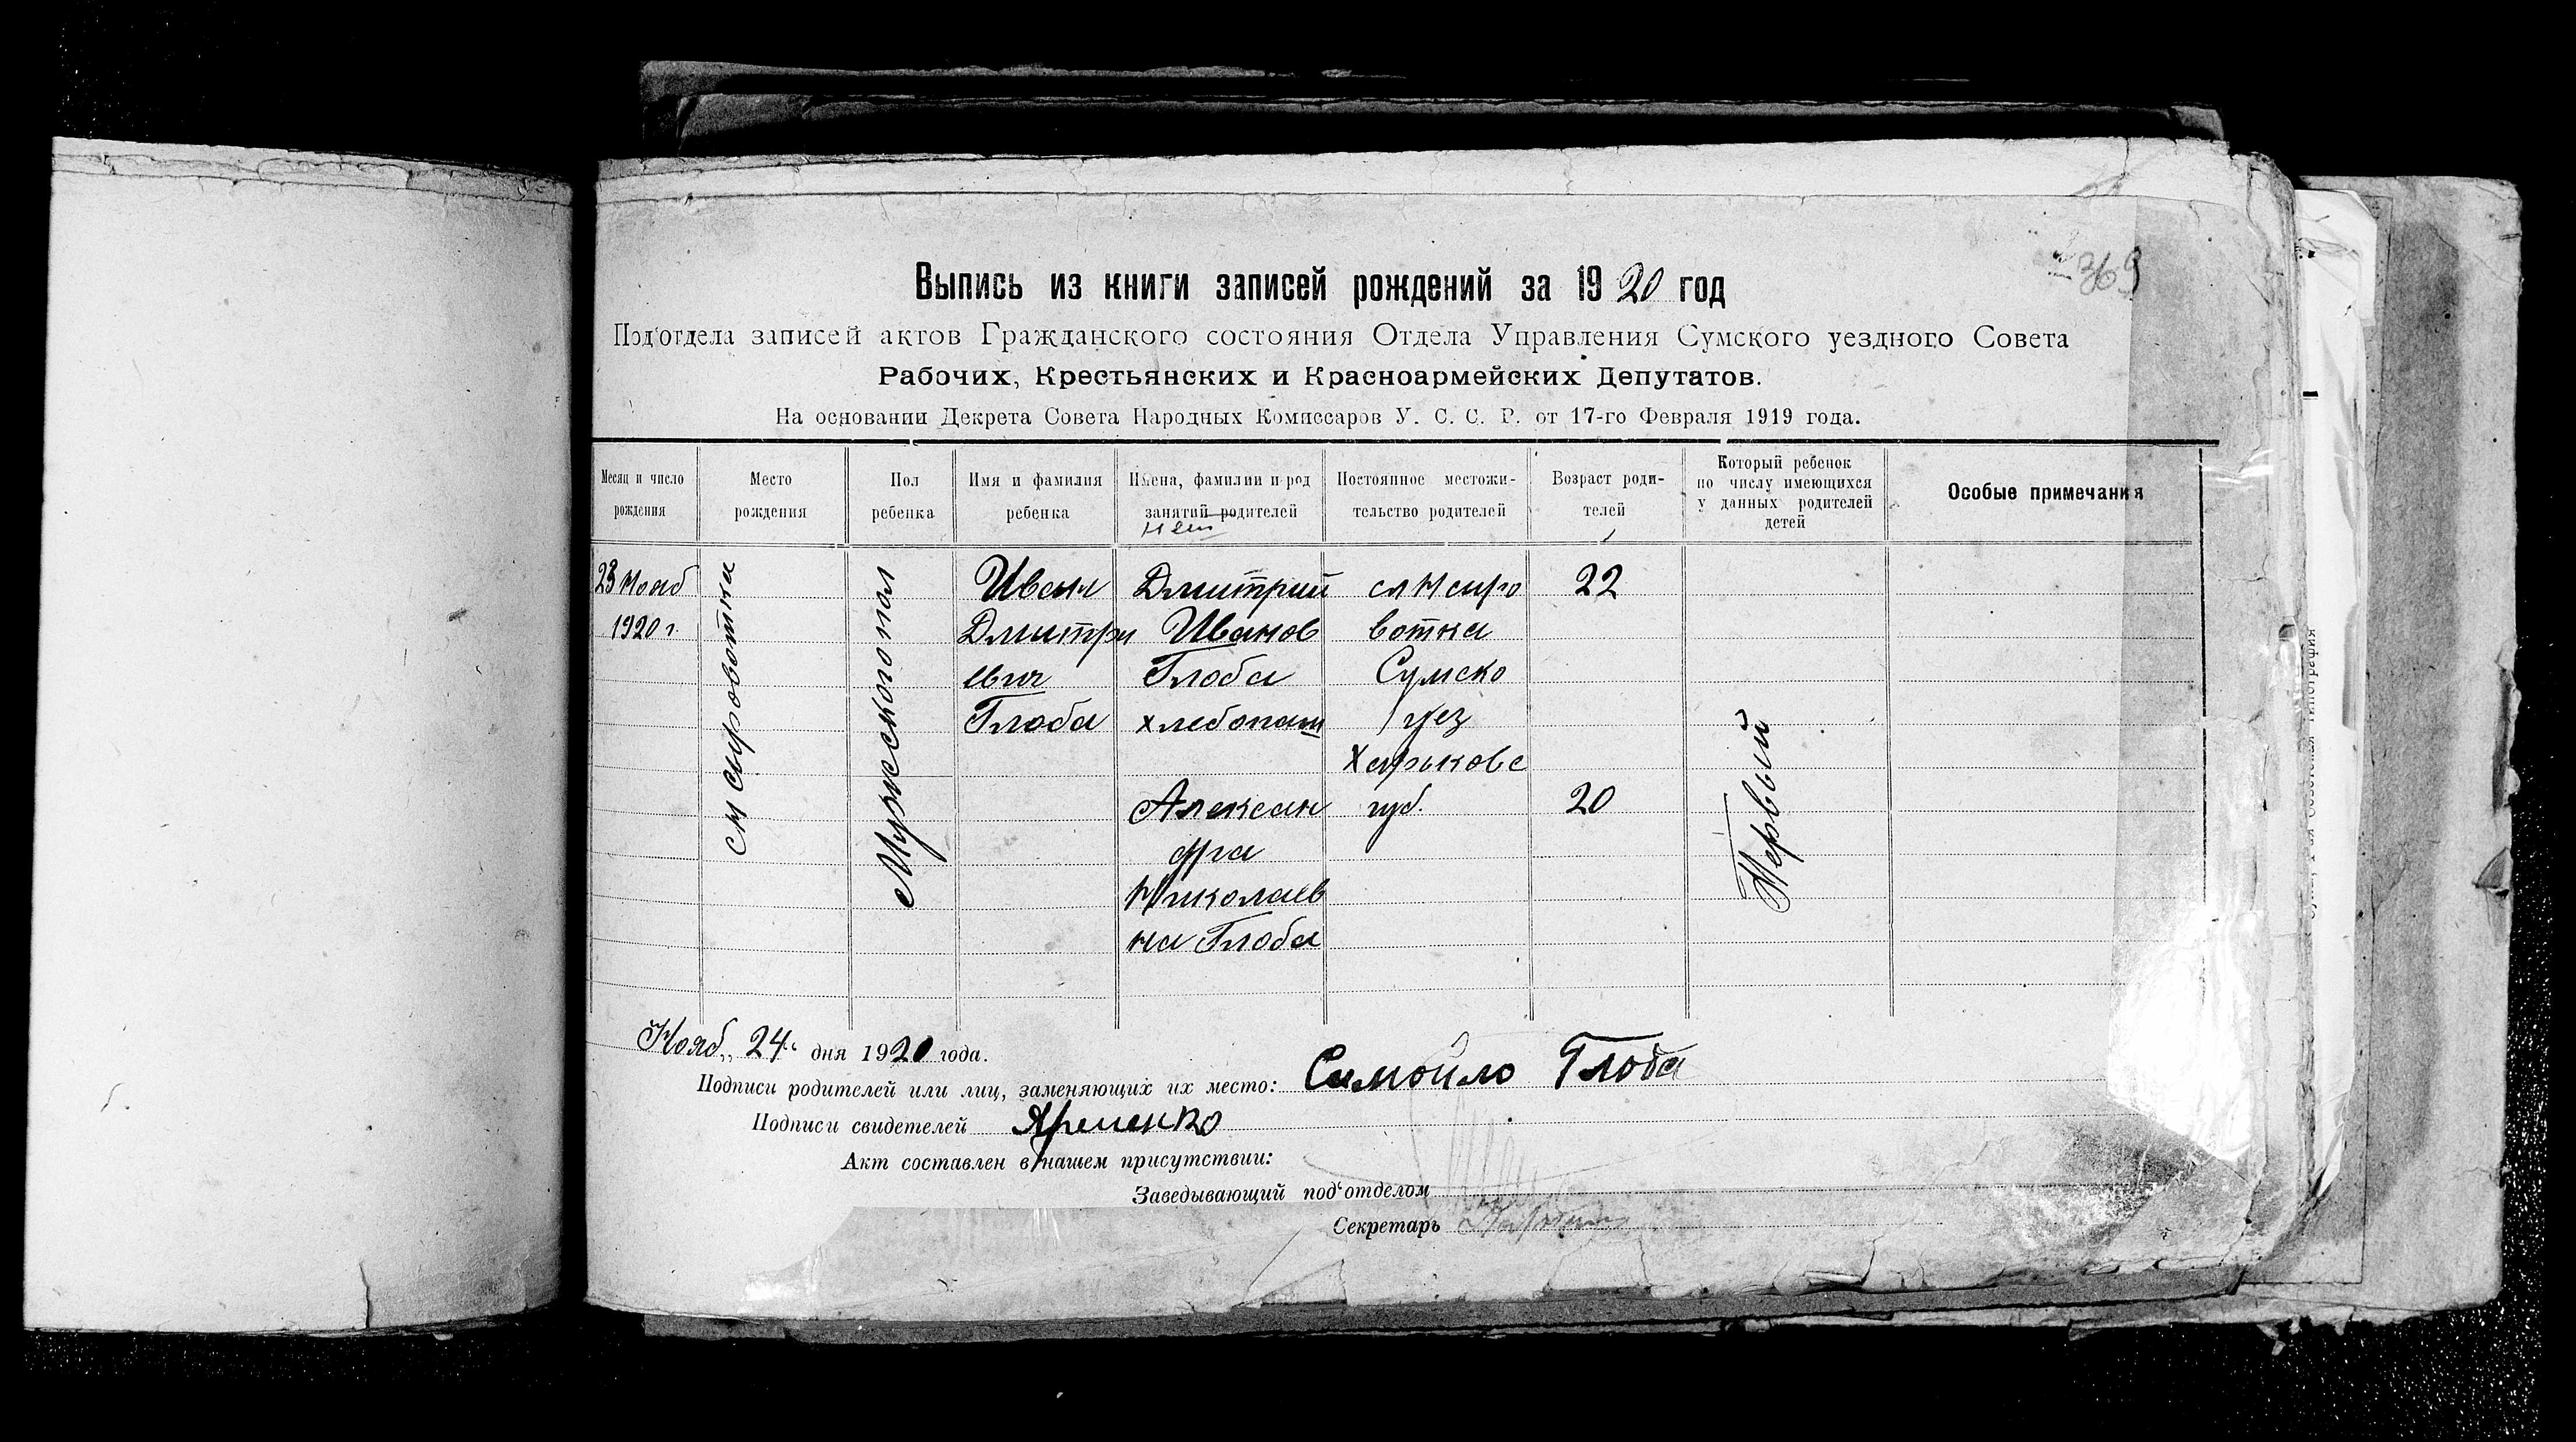 369
Выпись из книги записей рождений за 1920 год
Под‘отдела записей актов Гражданского состояния Отдела Управления Сумского уездного Совета
Рабочих, Крестьянских и Красноармейских Депутатов.
На основании Декрета Совета Народных Комиссаров У. С. С. Р. от 17-го Февраля 1919 года.
Месяц и число рождения
Место рождения
Пол ребенка
Имя и фамилия ребенка
Имена, фамилии и род занятий родителей
Постоянное местожи-тельство родителей
Возраст роди-телей
Который ребенок по числу имеющихся у данных родителей детей
Особые примечания
23 Нояб
1920 г.
Сыроватка
Мужескего пол
Иван
Дмитри
евич
Глоба
Дмитрий
Иванов
Глоба
хлебопаш
Алексан
дра
Николаев
на Глоба
сл Нсиро
ватка
Сумско
уез
Харьковс
губ.
22
20
Первый
Нояб „24“ дня 1920 года.
Подписи родителей или лиц, заменяющих их место: Самойло Глоба
Подписи свидетелей Яременко
Акт составлен в нашем присутствии:
Заведывающий под‘отделом
Секретарь